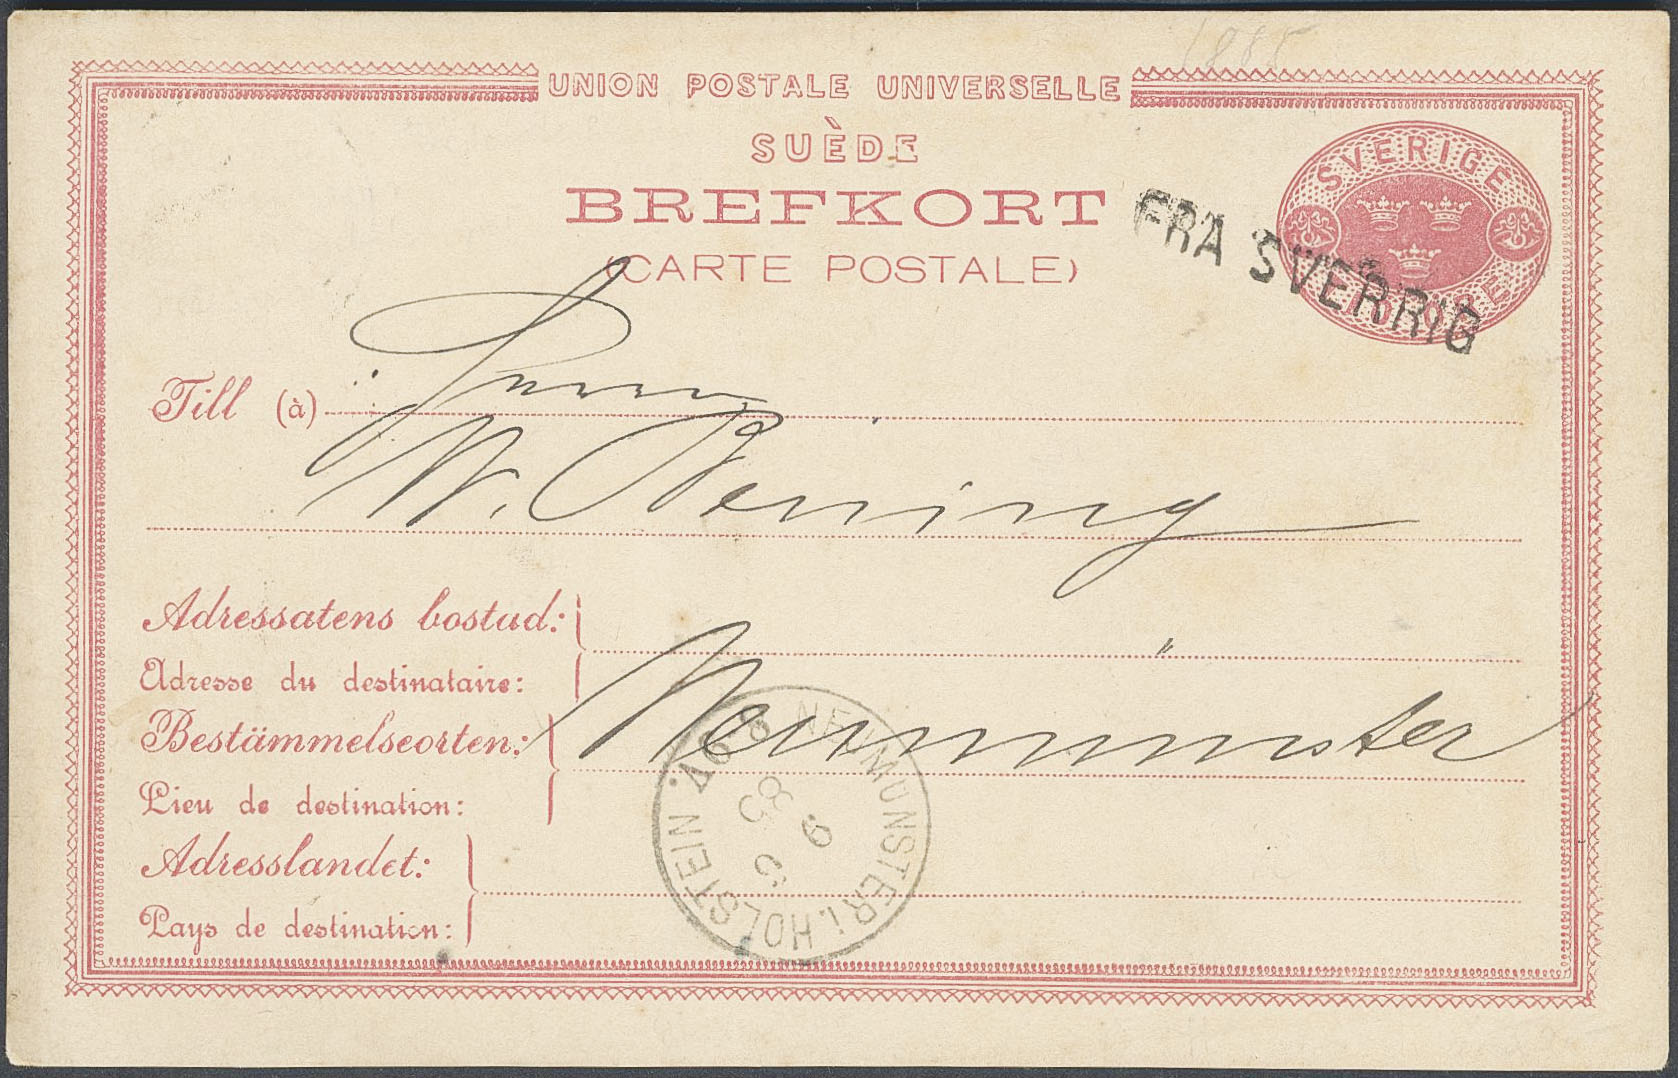 1885
UNION POSTALE UNIVERSELLE
SUÈDE
BREFKORT
(CARTE POSTALE)
SVERIGE
FRA SVERRIG
Till (à)
Herrn
W. Bening
Adressatens bostad:
Adresse du destinataire:
Bestämmelseorten:
Neumünster
Lieu de destination:
Adresslandet:
Pays de destination:
NEUMÜNSTER i. HOLSTEIN
8-9V.
85